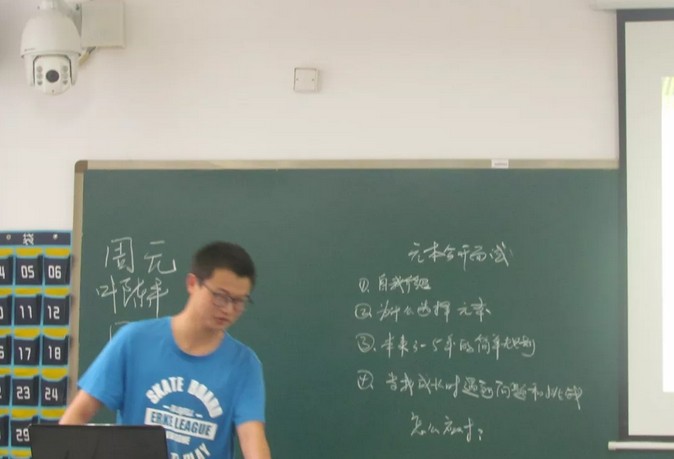 周元
元素合开面试
①. 自我介绍
②. 为什么选择元素
③. 未来3-5年的简单规划
④. 当我成长时遇到问题和挑战
怎么应对?
SKATE BOARD
LEAGUE
PLAY
05 06
11 12
17 18
23 24
29